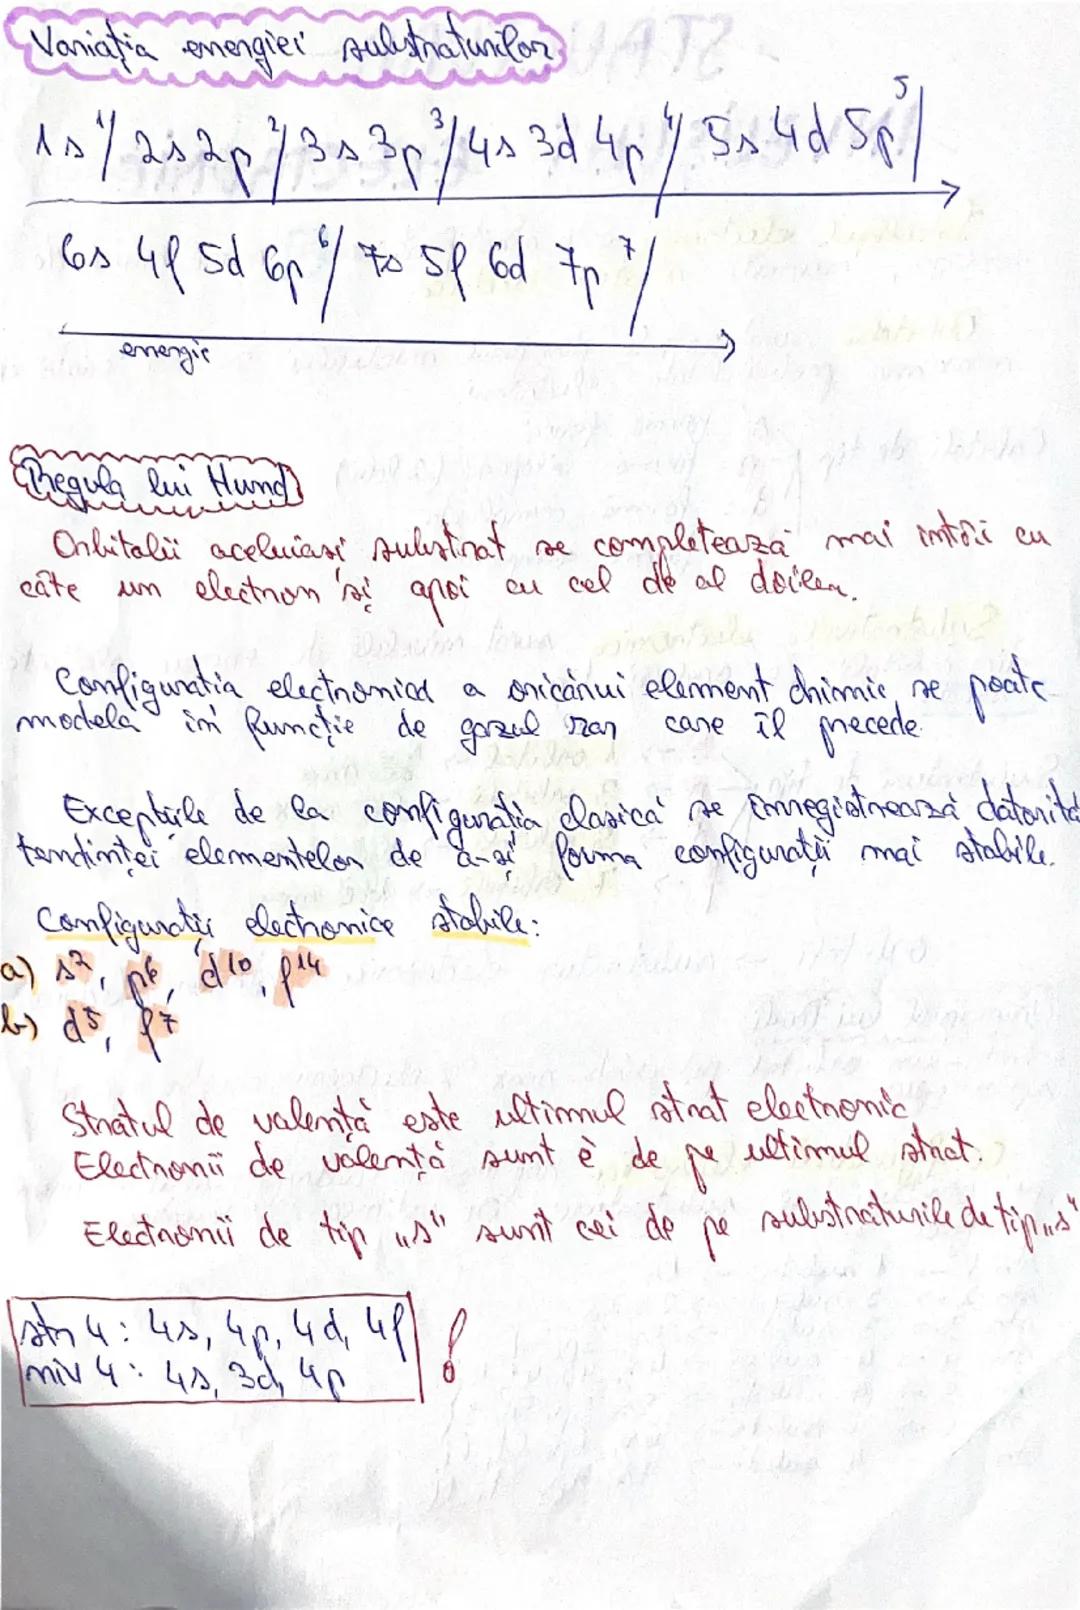 Variația energiei substraturilor
1s 1/ 2s 2p 2/ 3s 3p 3/ 4s 3d 4p 4/ 5s 4d 5p 5/
6s 4f 5d 6p 6/ 7s 5f 6d 7p 7/
energie
Regula lui Hund
Orbitalii aceluiași substrat se completează mai întâi cu
câte un electron și apoi cu cel de al doilea.
Configurația electronică a oricărui element chimic se poate
modela în funcție de gazul rar care îl precede.
Excepțiile de la configurația clasică se înregistrează datorită
tendinței elementelor de a-și forma configurații mai stabile.
Configurații electronice stabile:
a) s², p⁶, d¹⁰, f¹⁴
b) d⁵, f⁷
Stratul de valență este ultimul strat electronic
Electronii de valență sunt ē de pe ultimul strat.
Electronii de tip „s" sunt cei de pe substraturile de tip „s"
str 4: 4s, 4p, 4d, 4f !
niv 4: 4s, 3d, 4p